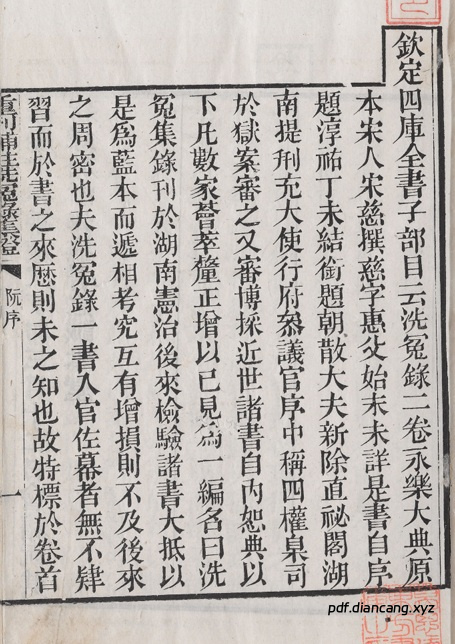 欽定四庫全書子部目云洗冤錄二卷永樂大典原
本宋人宋慈撰慈字惠父始末未詳是書自序
題淳祐丁未結銜題朝散大夫新除直祕閣湖
南提刑充大使行府叅議官序中稱四權臬司
於獄案審之又審博採近世諸書自內恕典以
下凡數家薈萃釐正增以己見為一編名曰洗
冤集錄刊於湖南憲治後來檢驗諸書大抵以
是為藍本而遞相考究互有增損則不及後來
之周密也夫洗冤錄一書入官佐幕者無不肄
習而於書之來歷則未之知也故特標於卷首
重刊補註洗冤錄集證 阮序 一
pdf.diancang.xyz